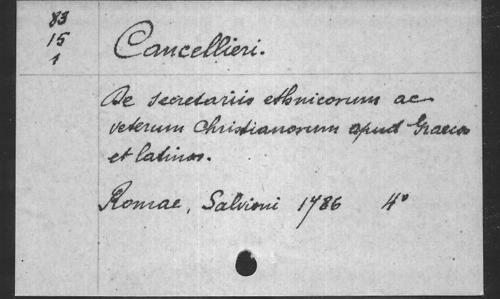 83
15
1
Cancellieri.
De secretariis ethnicorum ac
veterum Christianorum apud Graecos
et latinos.
Romae, Salvioni 1786 4°